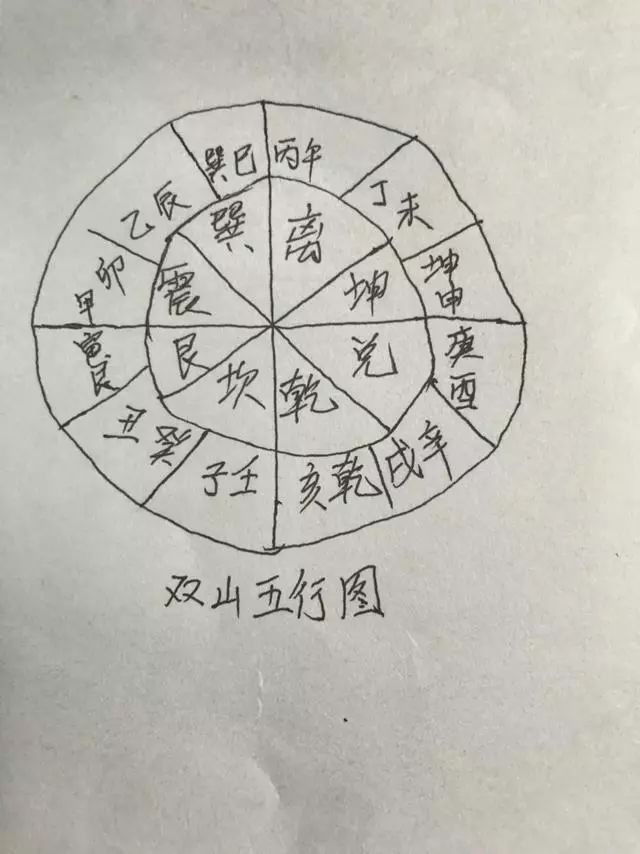 巽巳
丙午
丁未
坤申
庚酉
辛戌
乾亥
壬子
癸丑
艮寅
甲卯
乙辰
巽
离
坤
兑
乾
坎
艮
震
双山五行图